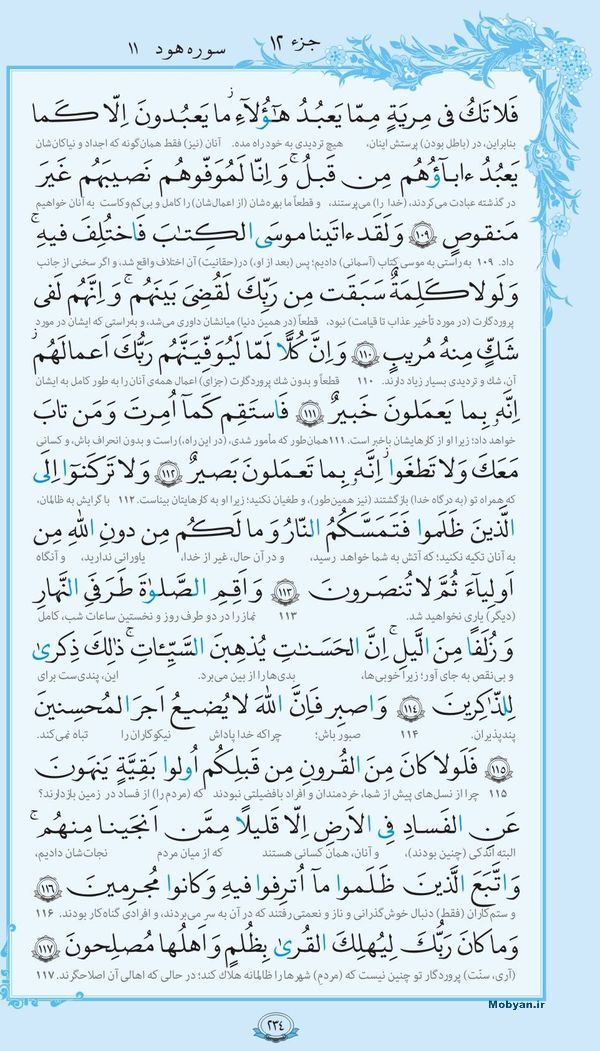 جزء ۱۲ سوره هود ۱۱
فَلا تَكُ فی مِريَةٍ مِمّا يَعبُدُ هٰٓؤُلآءِ ۚ ما يَعبُدونَ اِلّا كَما
بنابراین، در (باطل بودن) پرستش اینان، هیچ تردیدی به خود راه مده. آنان (نیز) فقط همان‌گونه که اجداد و نیاکان‌شان
يَعبُدُ ءابآؤُهُم مِن قَبلُ ۚ وَ اِنّا لَمُوَفّوهُم نَصيبَهُم غَيرَ
در گذشته عبادت می‌کردند، (خدا را) می‌پرستند، و قطعاً ما بهره‌شان (از اعمال‌شان) را کامل و بی‌کم و کاست به آنان خواهیم
مَنقوصٍ ﴿۱۰۹﴾ وَ لَقَد ءاتَينا موسَی الكِتٰبَ فَاختُلِفَ فيهِ ۚ
داد. ۱۰۹ به راستی به موسی کتاب (آسمانی) دادیم؛ پس (بعد از او،) در (حقانیت) آن اختلاف واقع شد، و اگر سخنی از جانب
وَ لَولا كَلِمَةٌ سَبَقَت مِن رَبِّكَ لَقُضِیَ بَينَهُم ۚ وَ اِنَّهُم لَفی
پروردگارت (در مورد تأخیر عذاب تا قیامت) نبود، قطعاً (در همین دنیا) میانشان داوری می‌شد، و به‌راستی که ایشان در مورد
شَكٍّ مِنهُ مُريبٍ ﴿۱۱۰﴾ وَ اِنَّ كُلًّا لَمّا لَيُوَفِّيَنَّهُم رَبُّكَ اَعمالَهُم ۚ
آن، شك و تردیدی بسیار زیاد دارند. ۱۱۰ قطعاً و بدون شك پروردگارت (جزای) اعمال همه‌ی آنان را به طور کامل به ایشان
اِنَّهُ بِما يَعمَلونَ خَبيرٌ ﴿۱۱۱﴾ فَاستَقِم كَمآ اُمِرتَ وَ مَن تابَ
خواهد داد؛ زیرا او از کارهایشان باخبر است. ۱۱۱ همان‌طور که مأمور شدی، (در این راه،) راست و بدون انحراف باش، و کسانی
مَعَكَ وَ لا تَطغَوا ۚ اِنَّهُ بِما تَعمَلونَ بَصيرٌ ﴿۱۱۲﴾ وَ لا تَركَنوٓا اِلَی
که همراه تو (به درگاه خدا) بازگشتند (نیز همین‌طور)، و طغیان نکنید؛ زیرا او به کارهایتان بیناست. ۱۱۲ با گرایش به ظالمان،
الَّذينَ ظَلَموا فَتَمَسَّكُمُ النّارُ وَ ما لَكُم مِن دونِ اللهِ مِن
به آنان تکیه نکنید؛ که آتش به شما خواهد رسید، و در آن حال، غیر از خدا، یاورانی ندارید، و آنگاه
اَولِيآءَ ثُمَّ لا تُنصَرونَ ﴿۱۱۳﴾ وَ اَقِمِ الصَّلوٰةَ طَرَفَیِ النَّهارِ
(دیگر) یاری نخواهید شد. ۱۱۳ نماز را در دو طرف روز و نخستین ساعات شب، کامل
وَ زُلَفًا مِنَ الَّيلِ ۚ اِنَّ الحَسَنٰتِ يُذهِبنَ السَّيِّئاتِ ۚ ذٰلِكَ ذِكریٰ
و بی‌نقص به جای آور؛ زیرا خوبی‌ها، بدی‌ها را از بین می‌برد. این، پندی‌ست برای
لِلذّاكِرينَ ﴿۱۱۴﴾ وَ اصبِر فَاِنَّ اللهَ لا يُضيعُ اَجرَ المُحسِنينَ
پندپذیران. ۱۱۴ صبور باش؛ چراکه خدا پاداش نیکوکاران را تباه نمی‌کند.
﴿۱۱۵﴾ فَلَولا كانَ مِنَ القُرونِ مِن قَبلِكُم اُولوا بَقِيَّةٍ يَنهَونَ
۱۱۵ چرا از نسل‌های پیش از شما، خردمندان و افراد بافضیلتی نبودند که (مردم را) از فساد در زمین بازدارند؟
عَنِ الفَسادِ فِی الاَرضِ اِلّا قَليلًا مِمَّن اَنجَينا مِنهُم ۚ
البته اندکی (چنین بودند)، و آنان، همان کسانی هستند که از میان مردم نجات‌شان دادیم،
وَ اتَّبَعَ الَّذينَ ظَلَموا مآ اُترِفوا فيهِ وَ كانوا مُجرِمينَ ﴿۱۱۶﴾
و ستم‌کاران (فقط) دنبال خوش‌گذرانی و ناز و نعمتی رفتند که در آن به سر می‌بردند، و افرادی گناه‌کار بودند. ۱۱۶
وَ ما كانَ رَبُّكَ لِيُهلِكَ القُریٰ بِظُلمٍ وَ اَهلُها مُصلِحونَ ﴿۱۱۷﴾
(آری، سنّت) پروردگار تو چنین نیست که (مردم) شهرها را ظالمانه هلاك کند؛ در حالی که اهالی آن اصلاحگرند. ۱۱۷
Mobyan.ir
۲۳۴